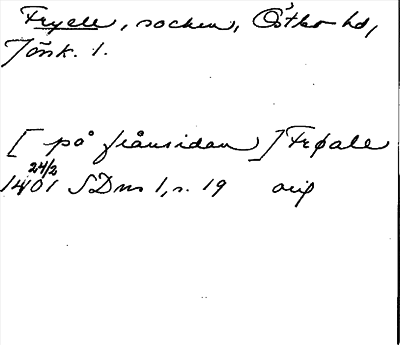 Fryele, socken, Östbo hd,
Jönk. l.
[på frånsidan] Frøale
24/2
1401 SDns 1, s. 19 orig